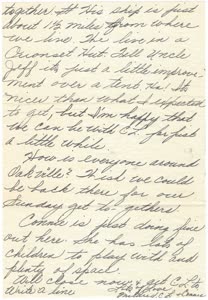 together at his ship is just
about 1½ miles from where
we live. We live in a
Quonset Hut. Tell Uncle
Jeff its just a little improve-
ment over a tent ha! Its
nicer than what I expected
to get, but I'm happy that
we can be with C.L. for just
a little while.
How is everyone around
Oakville? Wish we could
be back there for our
Sunday get to-gethers.
Connie is just doing fine
out here. She has lots of
children to play with and
plenty of space.
Will close now &
Write a line
Love
Mildred C.L. & Connie